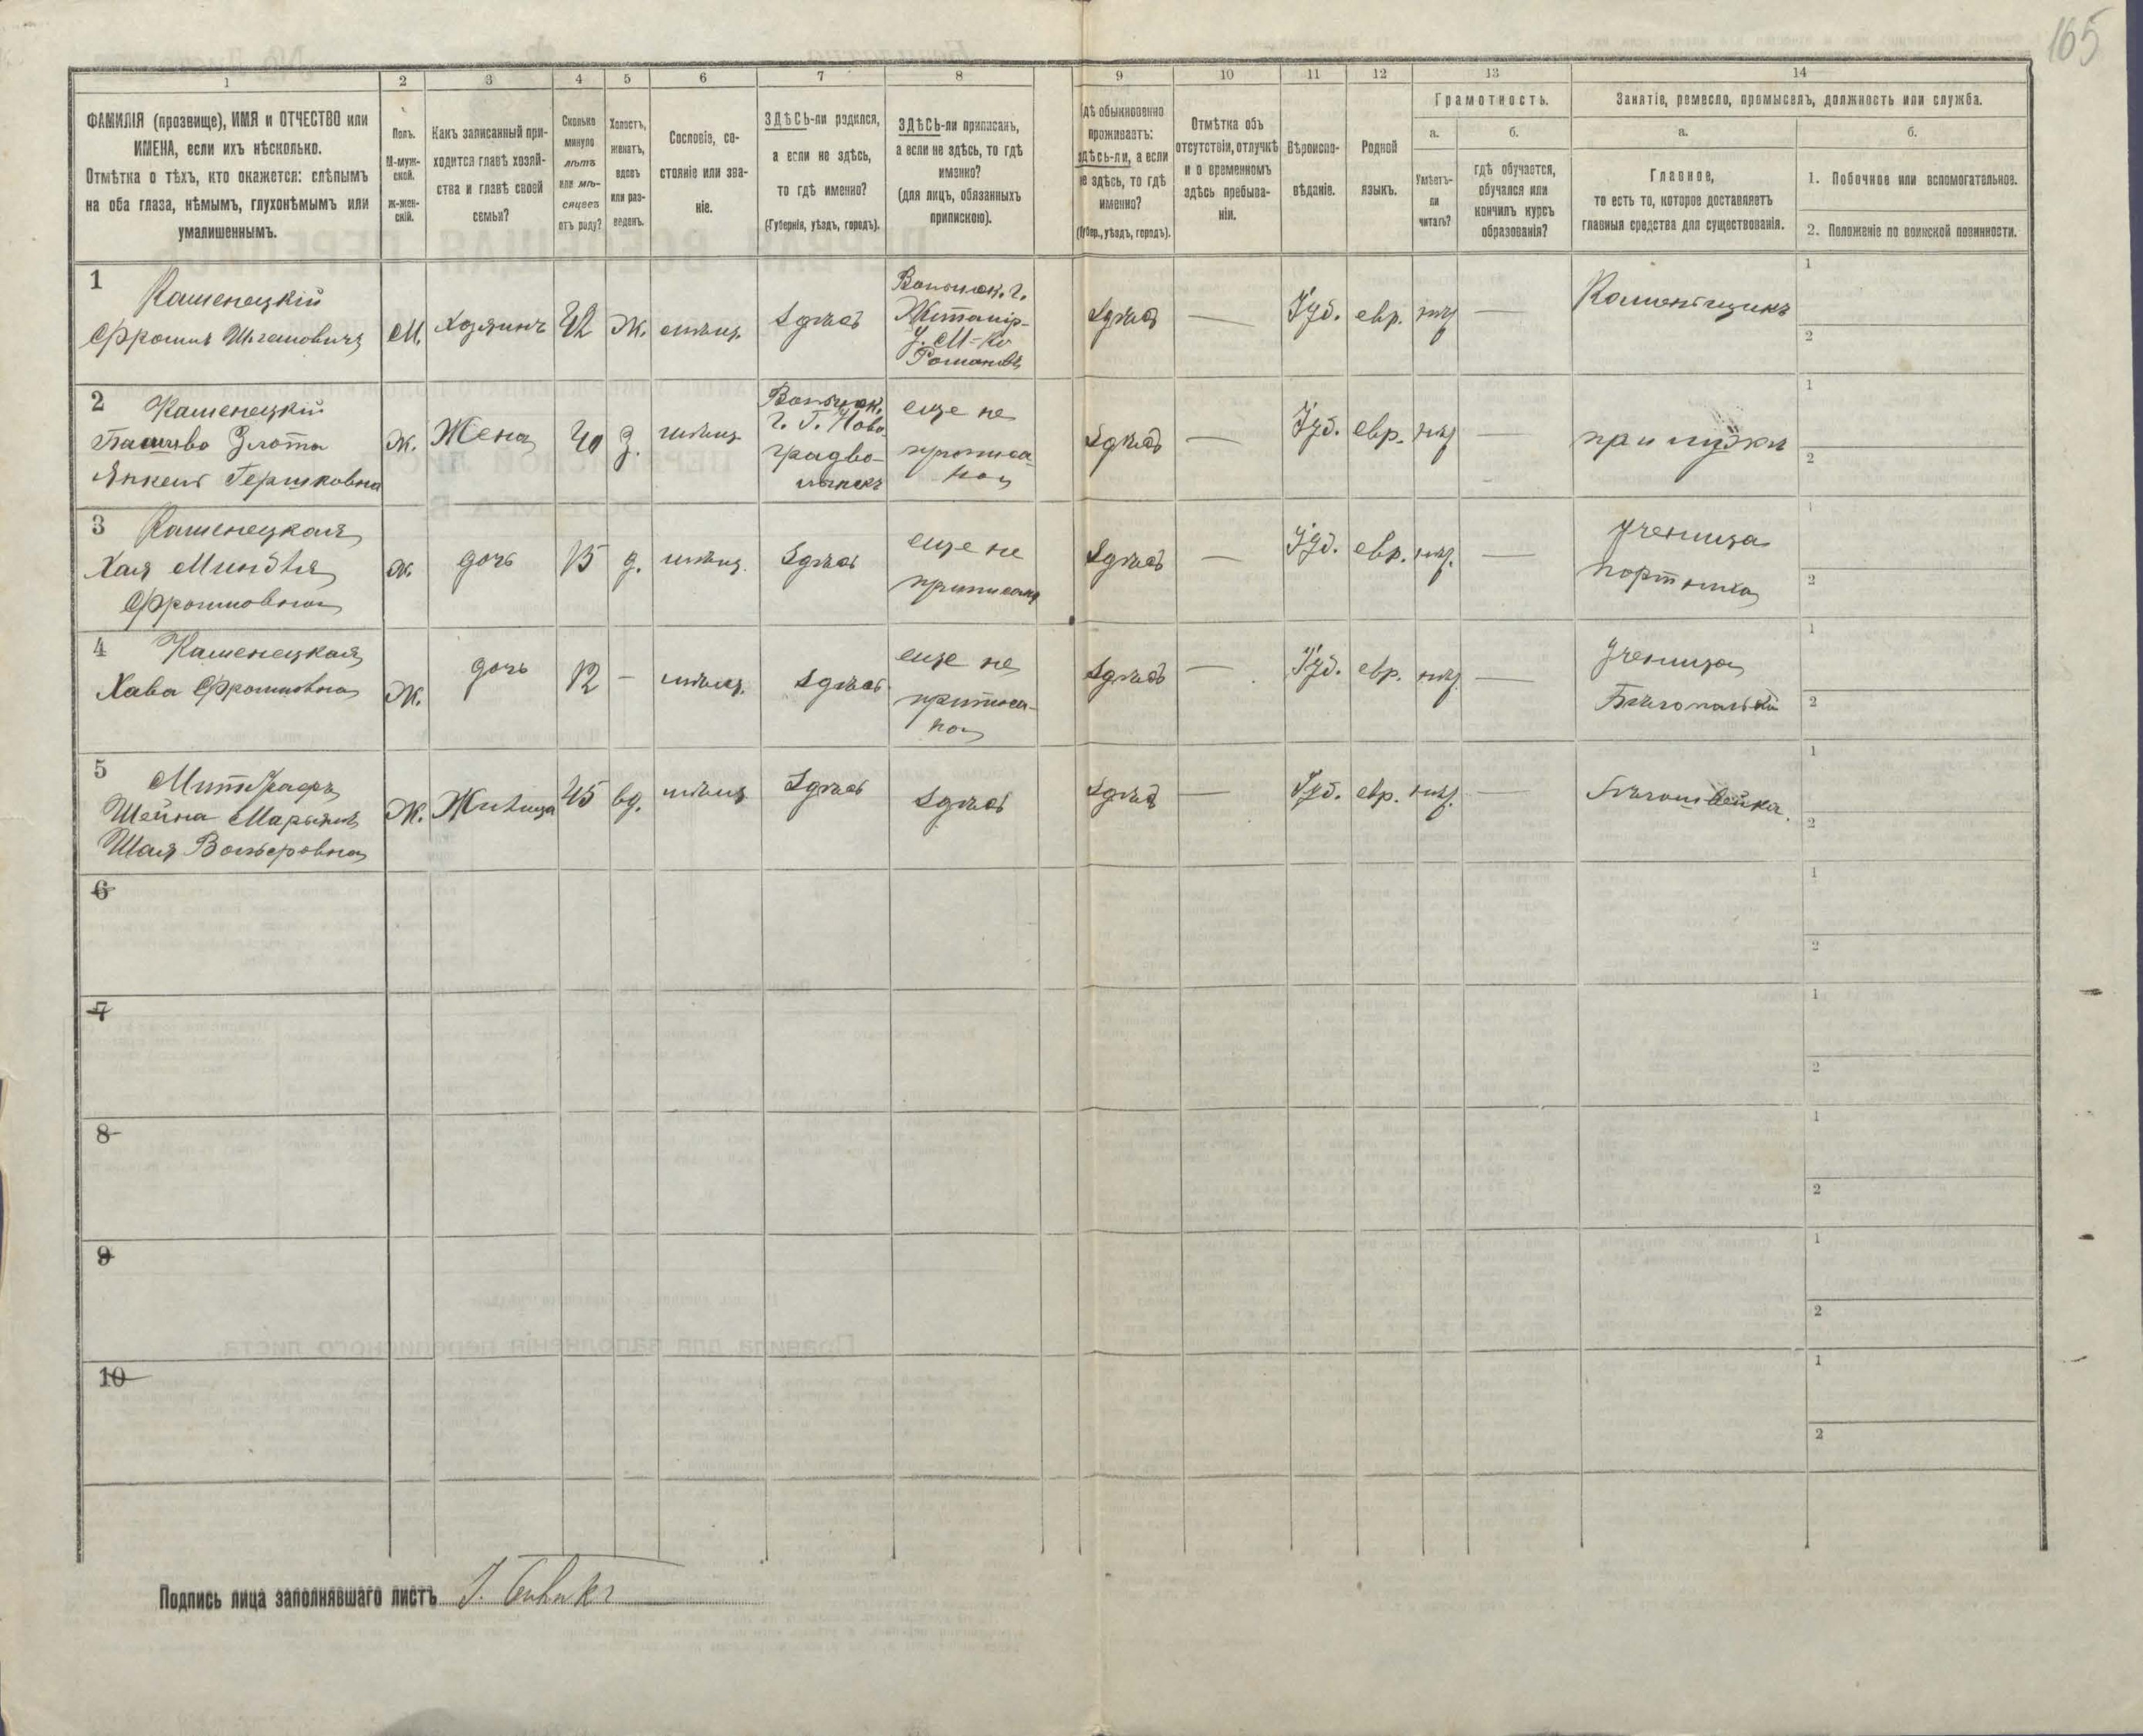 165
1
2
3
4
5
6
7
8
9
10
11
12
13
14
ФАМИЛІЯ (прозвище), ИМЯ и ОТЧЕСТВО или
ИМЕНА, если ихъ нѣсколько.
Отмѣтка о тѣхъ, кто окажется: слѣпымъ
на оба глаза, нѣмымъ, глухонѣмымъ или
умалишеннымъ.
Полъ.
М-муж-
ской.
Ж-жен-
скій.
Какъ записанный при-
ходится главѣ хозяй-
ства и главѣ своей
семьи?
Сколько
минуло
лѣтъ
или мѣ-
сяцевъ
отъ роду?
Холостъ,
женатъ,
вдовъ
или раз-
веденъ.
Сословіе, со-
стояніе или зва-
ніе.
ЗДѢСЬ-ли родился,
а если не здѣсь,
то гдѣ именно?
(Губернія, уѣздъ, городъ).
ЗДѢСЬ-ли приписанъ,
а если не здѣсь, то гдѣ
именно?
(для лицъ, обязанныхъ
припискою).
Гдѣ обыкновенно
проживаетъ:
здѣсь-ли, а если
не здѣсь, то гдѣ
именно?
(Губер., уѣздъ, городъ).
Отмѣтка объ
отсутствіи, отлучкѣ
и о временномъ
здѣсь пребыва-
ніи.
Вѣроиспо-
вѣданіе.
Родной
языкъ.
Грамотность.
а.
Умѣетъ-
ли
читать?
б.
гдѣ обучается,
обучался или
кончилъ курсъ
образованія?
Занятіе, ремесло, промыселъ, должность или служба.
а.
Главное,
то есть то, которое доставляетъ
главныя средства для существованія.
б.
1. Побочное или вспомогательное.
2. Положеніе по воинской повинности.
1
Каменецкій
Фроимъ
М. Хозяинъ 42 Ж. мѣщ. Здѣсь
Волынск. г.
Житомір.
у. М-ко
Романовъ
Здѣсь — Іуд. евр. нѣт —
Каменьщикъ
1
2
2
Каменецкій
Злота
Гершковна
Ж. Жена 40 З. мѣщ.
Волынск.
г. Г. Ново-
градво-
лынскъ
еще не
приписа-
на
Здѣсь — Іуд. евр. нѣт —
при мужѣ
1
2
3 Каменецкая
Хая Миндля
Фроимовна
Ж. дочь 15 д. мѣщ. Здѣсь
еще не
приписана
Здѣсь — Іуд. евр. нѣт. —
Ученица
портниха
1
2
4 Каменецкая
Хава Фроимовна
Ж. дочь 12 – мѣщ. Здѣсь
еще не
приписа-
на
Здѣсь — Іуд. евр. нѣт. —
Ученица
1
2
5
Шейна
Ж. Жилица 45 вд. мѣщ. Здѣсь Здѣсь
Здѣсь — Іуд. евр. нѣт. —
Бѣлошвейка.
1
2
6
1
2
7
1
2
8
1
2
9
1
2
10
1
2
Подпись лица заполнявшаго листъ